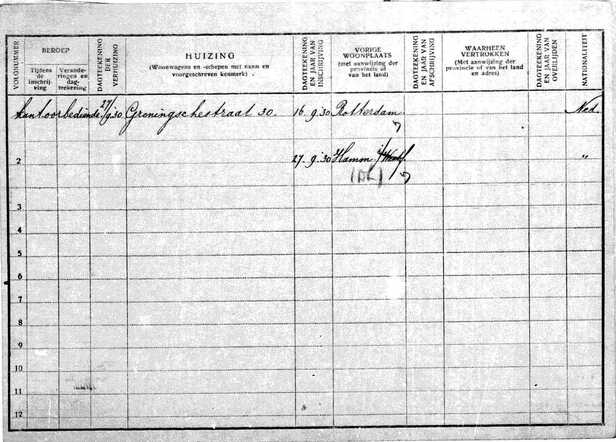 VOLGNUMMER
BEROEP
Tijdens de inschrij- ving
Verande- ringen en dag- teekening
DAGTEEKENING DER VERHUIZING
HUIZING
(Woonwagens en -schepen met naam en voorgeschreven kenmerk)
DAGTEEKENING EN JAAR VAN INSCHRIJVING
VORIGE WOONPLAATS
(met aanwijzing der provincie of van het land)
DAGTEEKENING EN JAAR VAN AFSCHRIJVING
WAARHEEN VERTROKKEN
(Met aanwijzing der provincie of van het land en adres)
DAGTEEKENING EN JAAR VAN OVERLIJDEN
NATIONALITEIT
Kantoorbediende 27/9.30 Groningschestraat 30. 16 9.30 Rotterdam Ned.
2 27.9.30 Hamm i/Westf "
(DL)
3
4
5
6
7
8
9
10
11
12